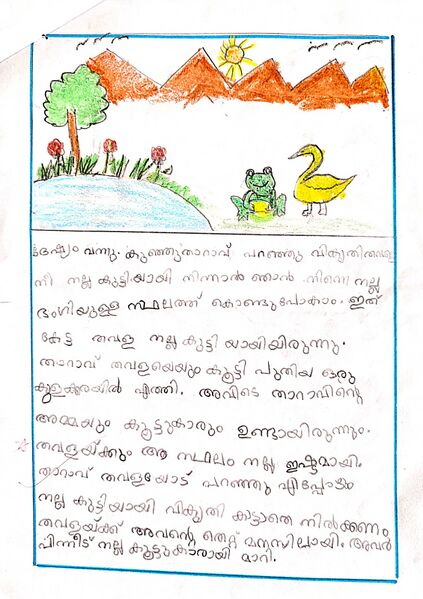 ദേഷ്യം വന്നു. കുഞ്ഞുതാറാവ് പറഞ്ഞു വികൃതിതവള
നീ നല്ല കുട്ടിയായി നിന്നാൻ ഞാൻ നിന്നെ നല്ല
ഭംഗിയുള്ള സ്ഥലത്ത് കൊണ്ടുപോകാം. ഇത്
കേട്ട തവള നല്ല കുട്ടി യായിയിരുന്നു.
താറാവ് തവളയെയും കൂട്ടി പുതിയ ഒരു
കുളക്കരയിൽ എത്തി. അവിടെ താറാവിന്റെ
അമ്മയും കൂട്ടുകാരും ഉണ്ടായിരുന്നു.
തവളയ്ക്കും ആ സ്ഥലം നല്ല ഇഷ്ടമായി.
താറാവ് തവളയോട് പറഞ്ഞു എപ്പോഴും
നല്ല കുട്ടിയായി വികൃതി കാട്ടാതെ നിൽക്കണം
തവളയ്ക്ക് അവന്റെ തെറ്റ് മനസ്സിലായി. അവർ
പിന്നീട് നല്ല കൂട്ടുകാരായി മാറി.